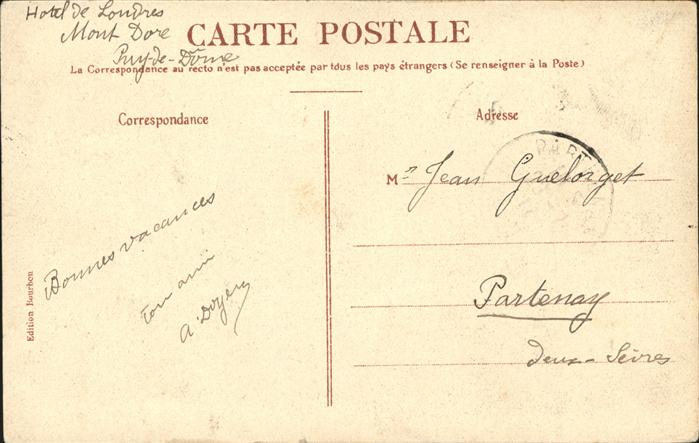 Hotel de Londres
Mont Dore
Puy-de-Dôme
CARTE POSTALE
La Correspondance au recto n'est pas acceptée par tous les pays étrangers (Se renseigner à la Poste)
Correspondance
Adresse
PART
Mr Jean Guelorget
Bonnes vacances
ton ami
A. Doyen
Partenay
deux-Sèvres
Edition Bourbon